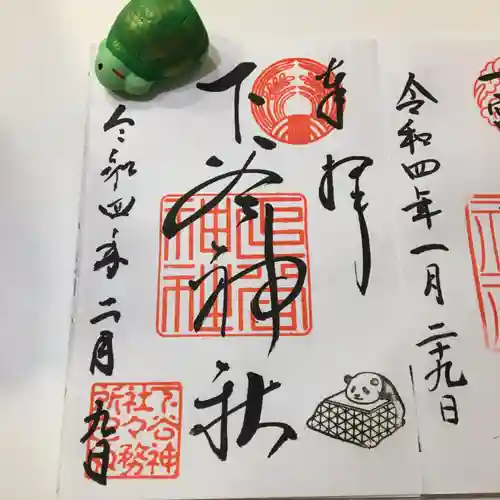 奉拝
下谷神社
令和四年二月
九日
下谷神
社々務
所之印
令和四年一月二十九日
下